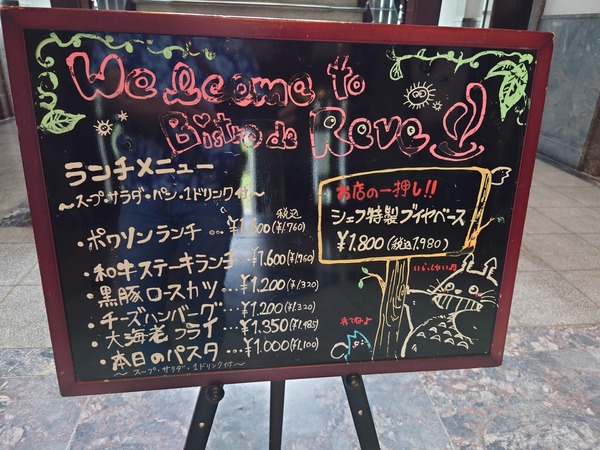 Welcome to
Bistro de Reve
ランチメニュー
～スープ・サラダ・パン・1ドリンク付～
税込
・ポワソンランチ … ¥1,600(¥1,760)
・和牛ステーキランチ … ¥1,600(¥1,760)
・黒豚ロースカツ … ¥1,200(¥1,320)
・チーズハンバーグ … ¥1,200(¥1,320)
・大海老フライ … ¥1,350(¥1,485)
・本日のパスタ … ¥1,000(¥1,100)
～スープ・サラダ・1ドリンク付～
お店の一押し!!
シェフ特製ブイヤベース
¥1,800(税込1,980)
いらっしゃい♪
来てね♪